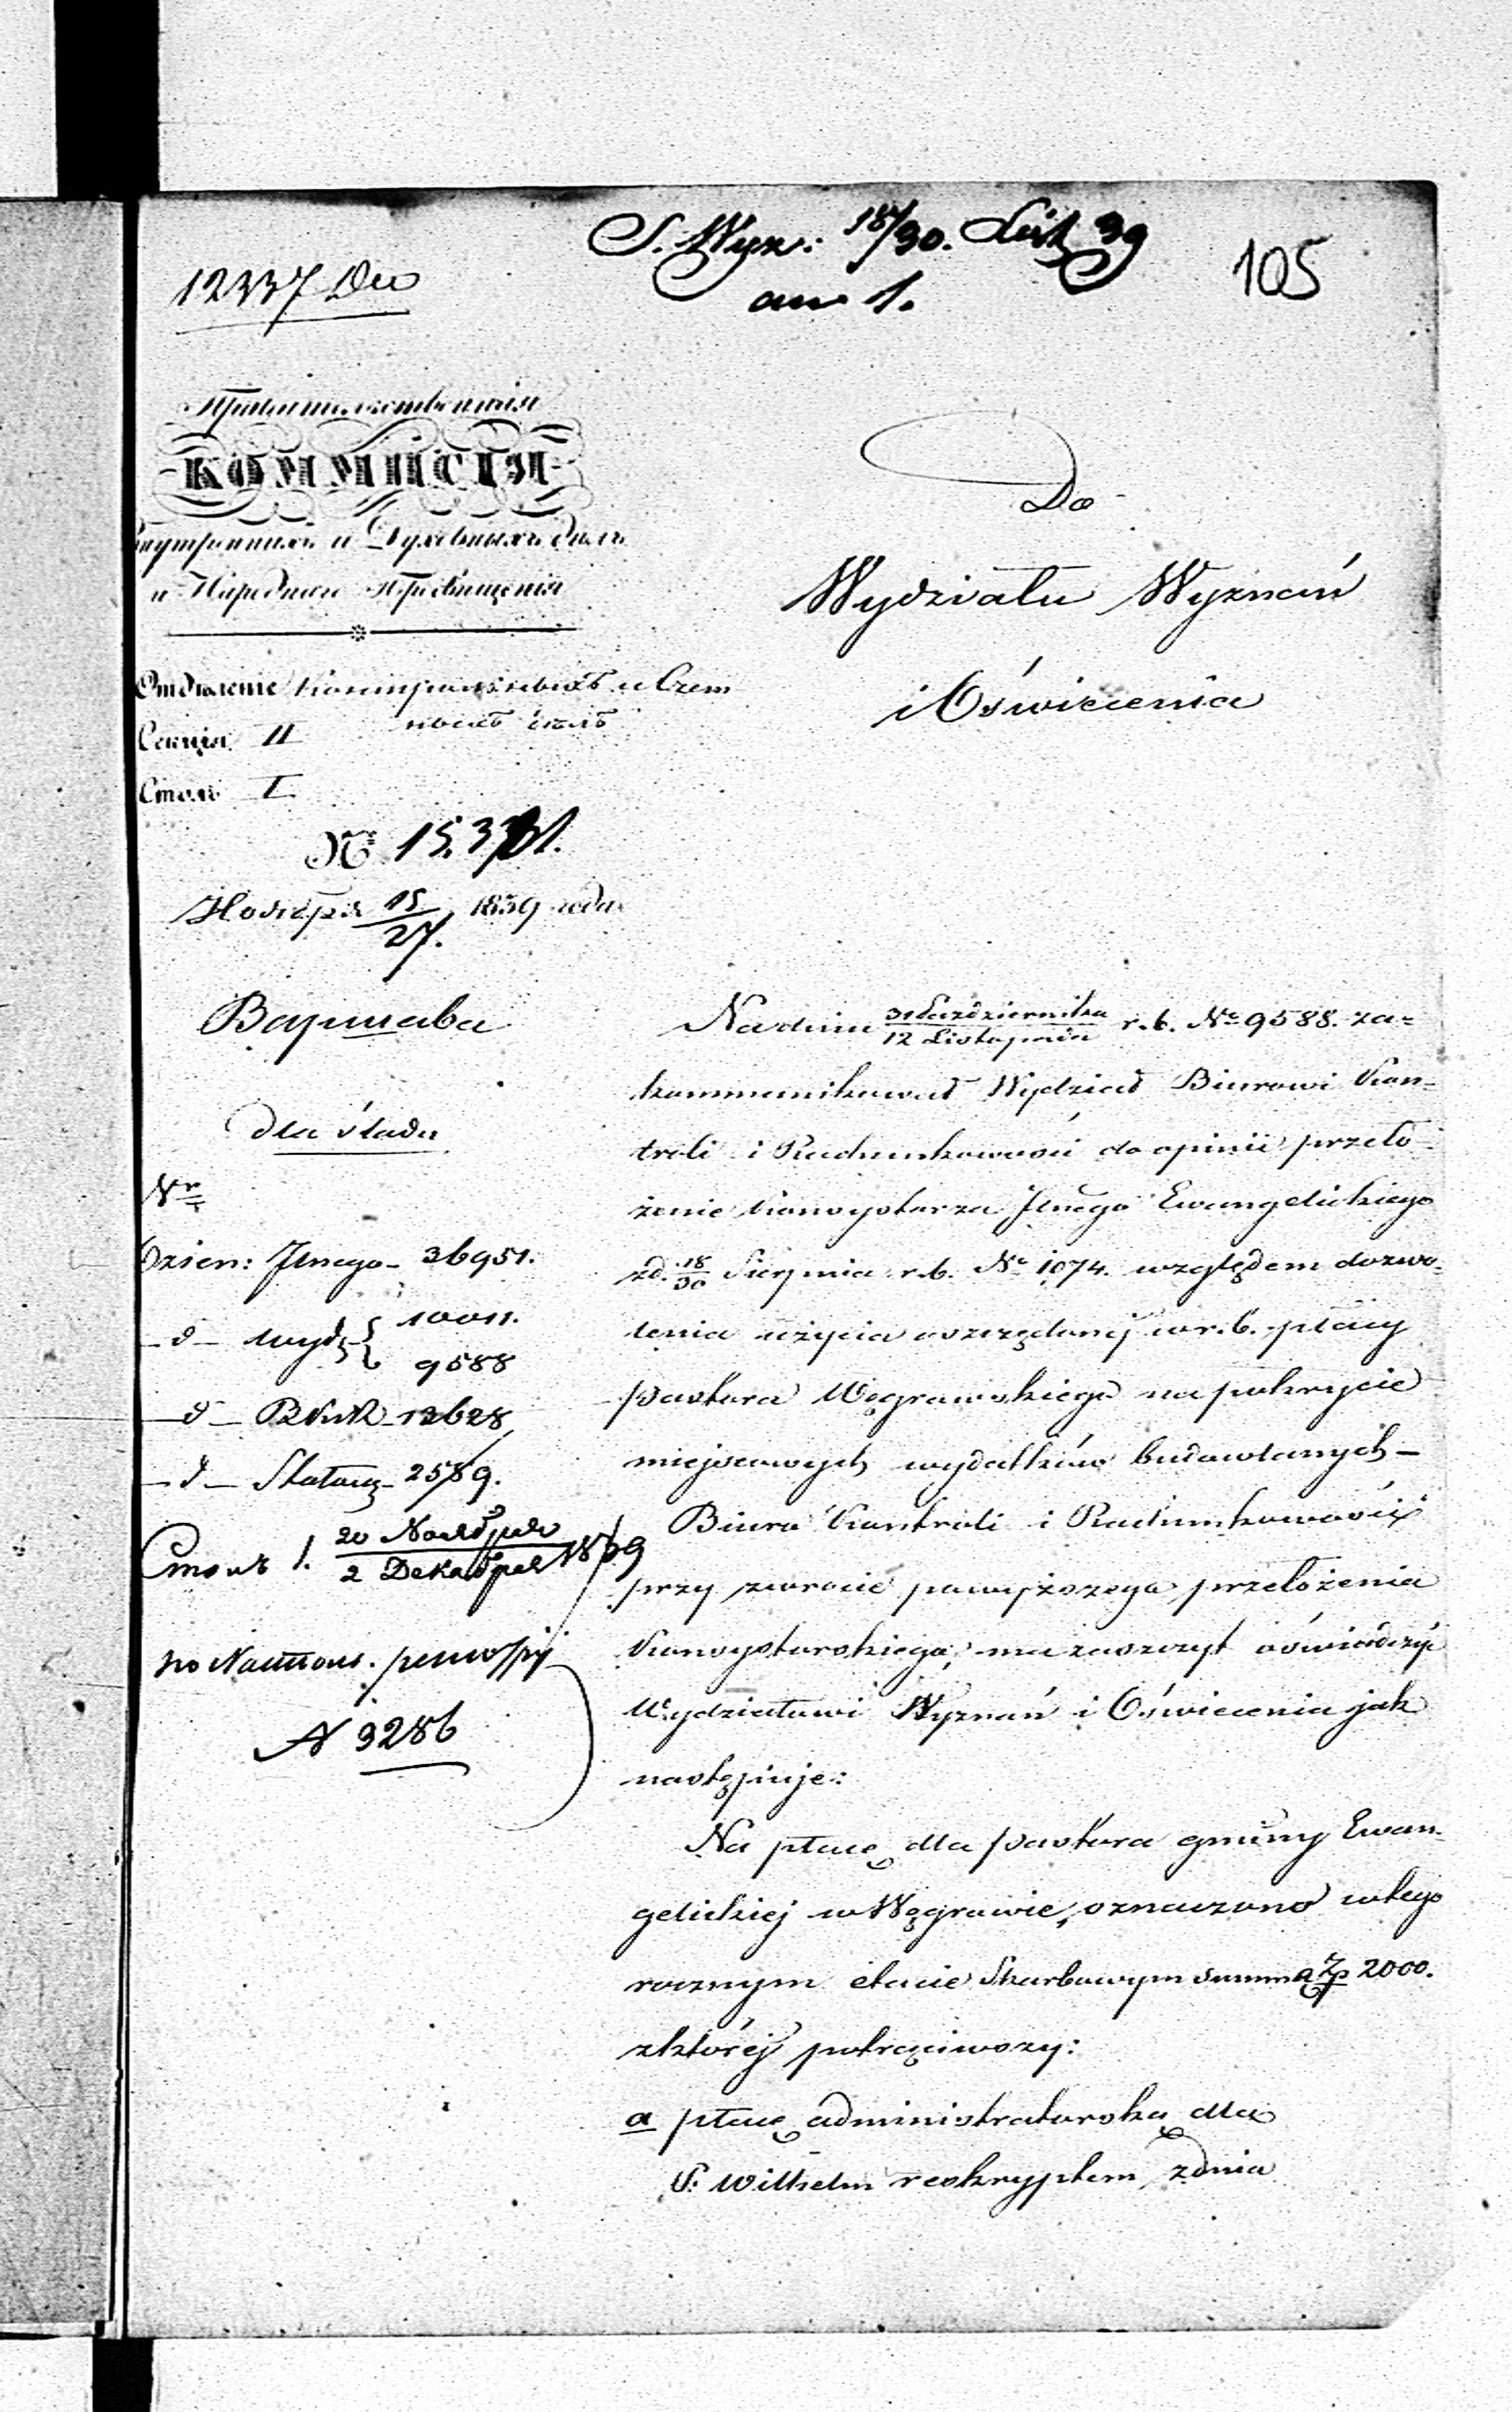 S. Wyz: 18/30. List 39
105
12337 Dw
an 1.
Правительственная
КОММИСІЯ
Внутреннихъ и Духовныхъ дѣлъ
и Народнаго Просвѣщенія
Отдѣленіе Контрольныхъ и Счет
ныхъ дѣлъ
Секція II
Столъ I
№ 15,331.
Ноября 15/27. 1839 года
Варшава
dla śladu
Nr
Dzien: Jlnego - 36951.
- d - Wydz { 10011.
9588
- d - BKnR - 12628
- d - 2589.
Столъ 1. 20 Ноября / 2 Декабря 1839
по Настол.
N 3286
Do
Wydziału Wyznań
i Oświecenia
Na dniu 31 Października / 12 Listopada r. b. Nr 9588. za=
kommunikował Wydział Biurowi Kon=
troli i Rachunkowości do opinii przeło-
żenie Konsystorza Jlnego Ewangelickiego
z d. 18/30 Sierpnia r. b. Nr 1074. względem dozwo=
lenia użycia oszczędzonej w r. b. płacy
Pastora Węgrowskiego na pokrycie
miejscowych wydatków budowlanych -
Biuro Kontroli i Rachunkowości
przy zwrocie powyższego przełożenia
Konsystorskiego, ma zaszczyt oświadczyć
Wydziałowi Wyznań i Oświecenia jak
następuje:
Na płacę dla Pastora gminy Ewan-
gelickiej w Węgrowie, oznaczono w tego
rocznym etacie Skarbowym summą Zp 2000.
z której potrąciwszy:
a płacę administratorską dla
P. Wilhelm reskryptem z dnia